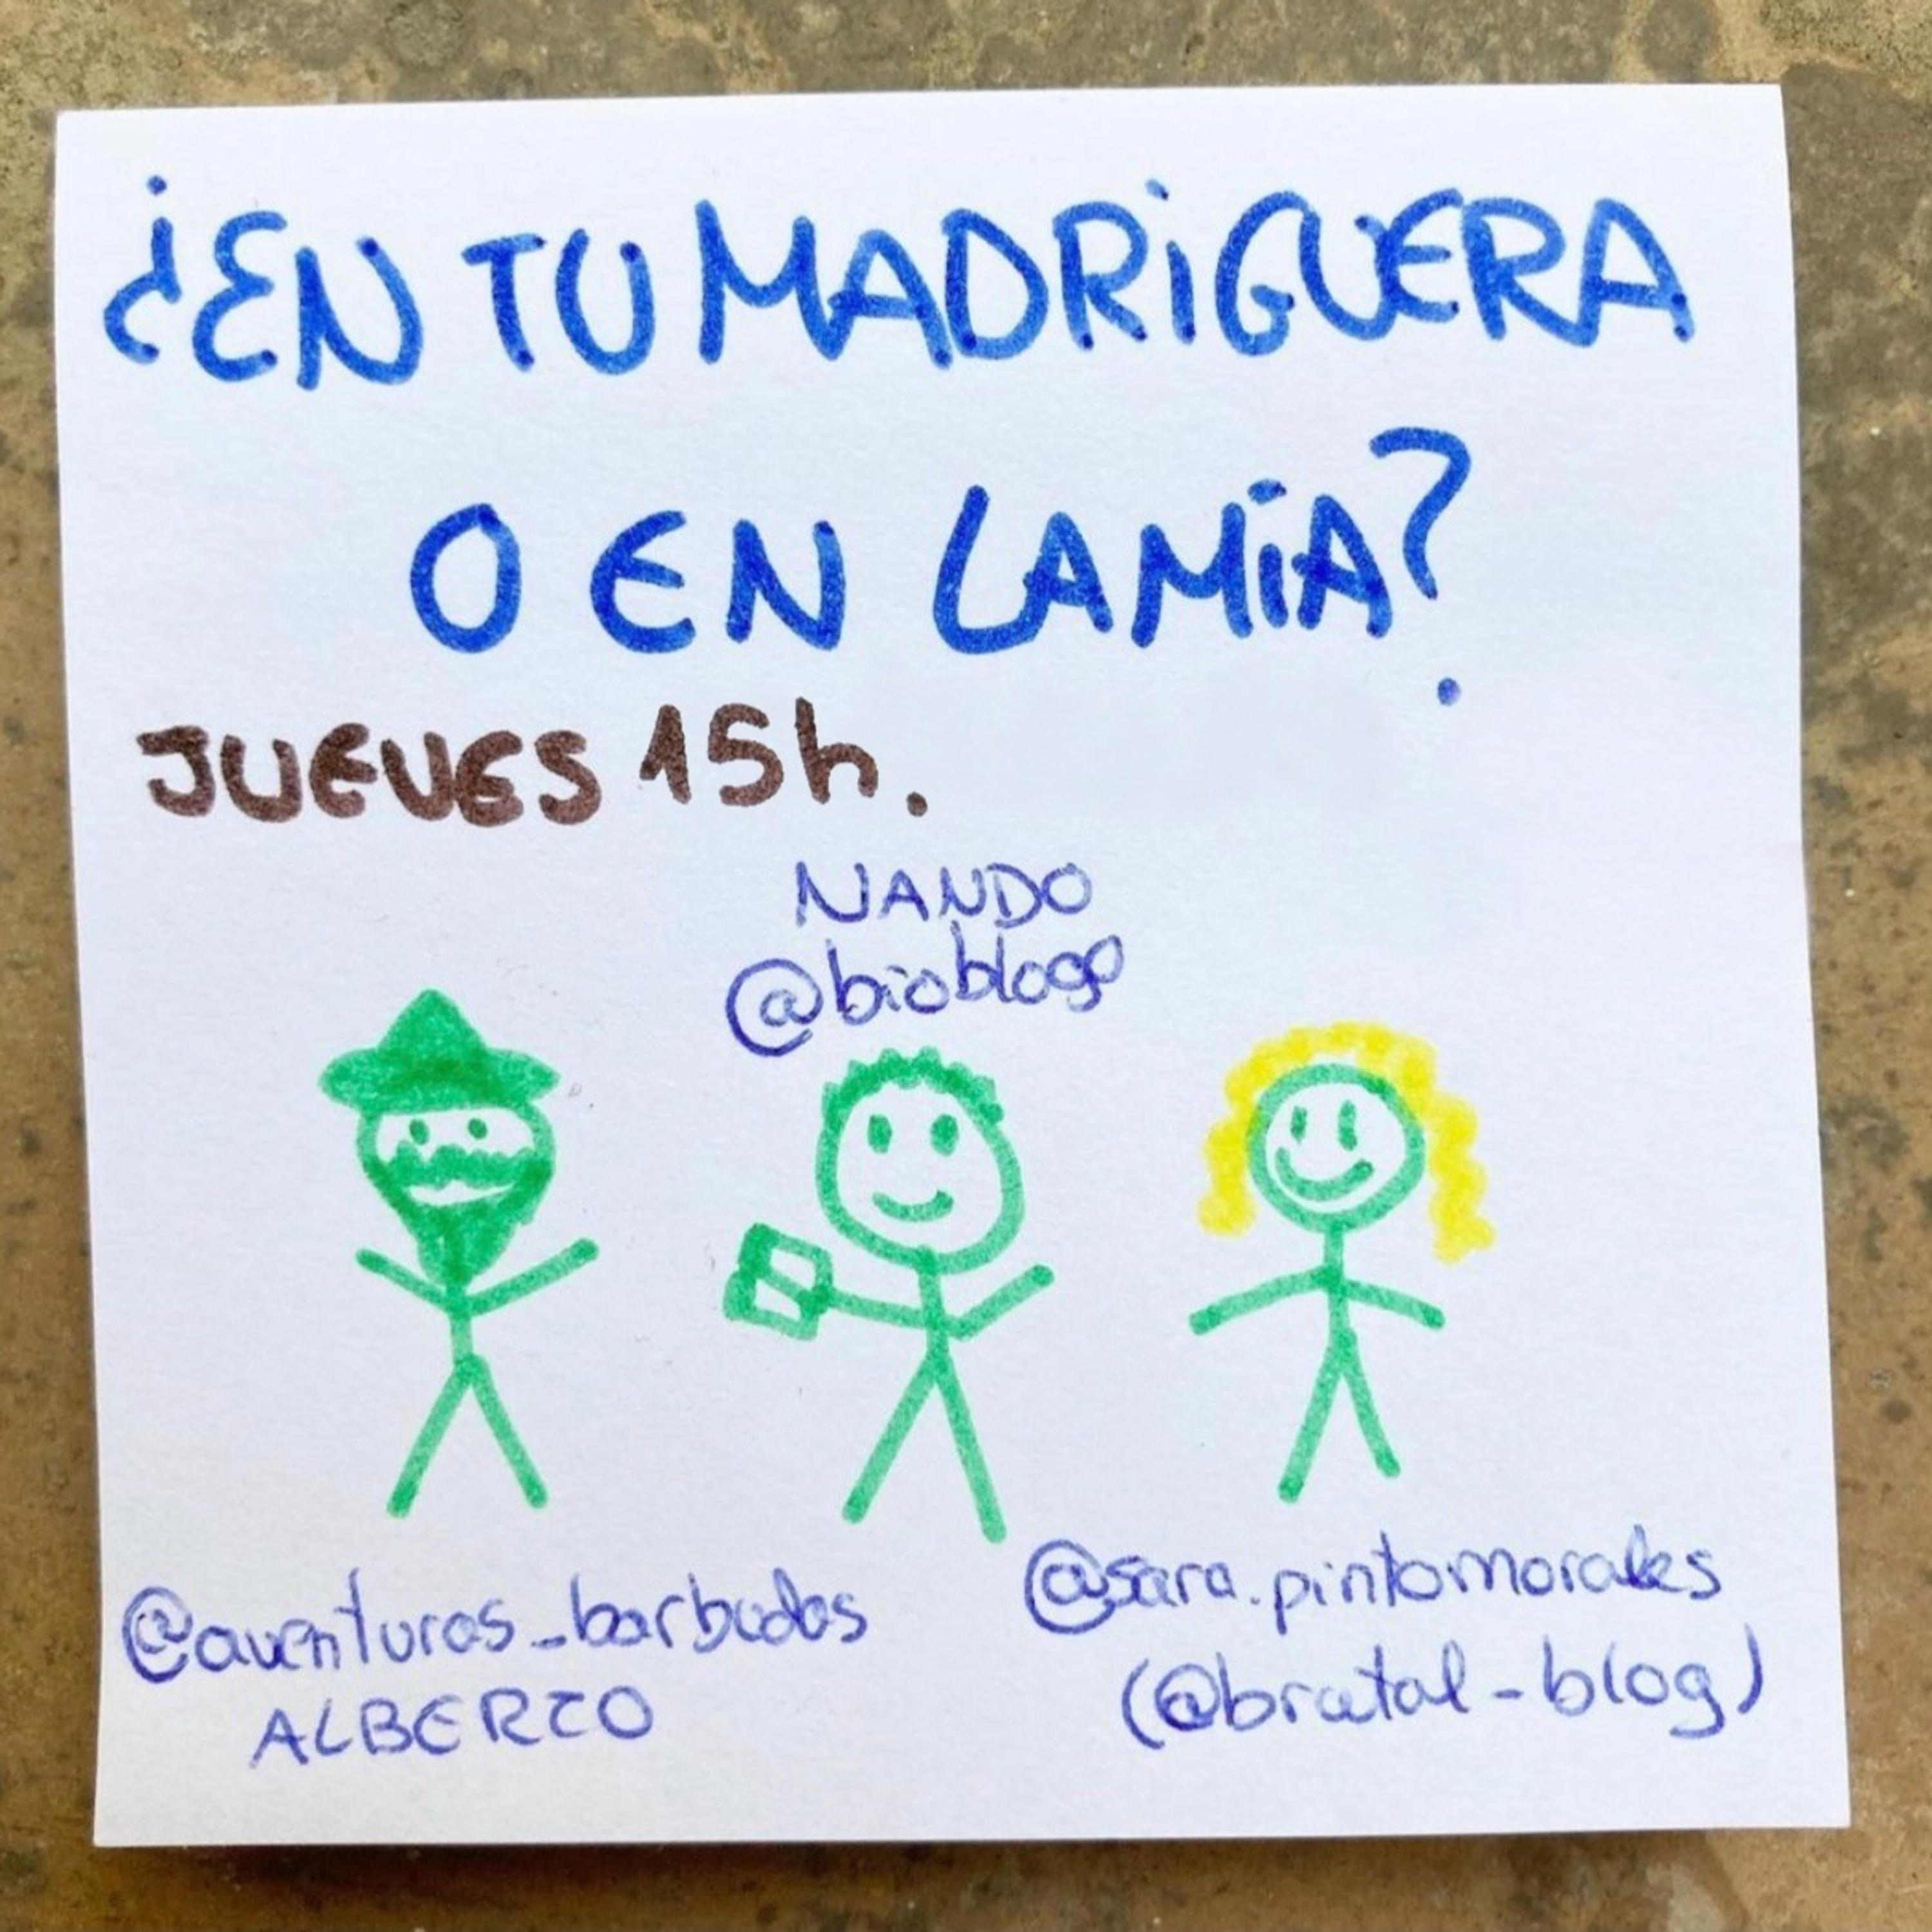 ¿EN TU MADRiGUERA
O EN LA MíA?
JUEVES 15h.
NANDO
@bioblogo
@aventuras_barbudas
ALBERTO
@sara.pintomorales
(@brutal-blog)